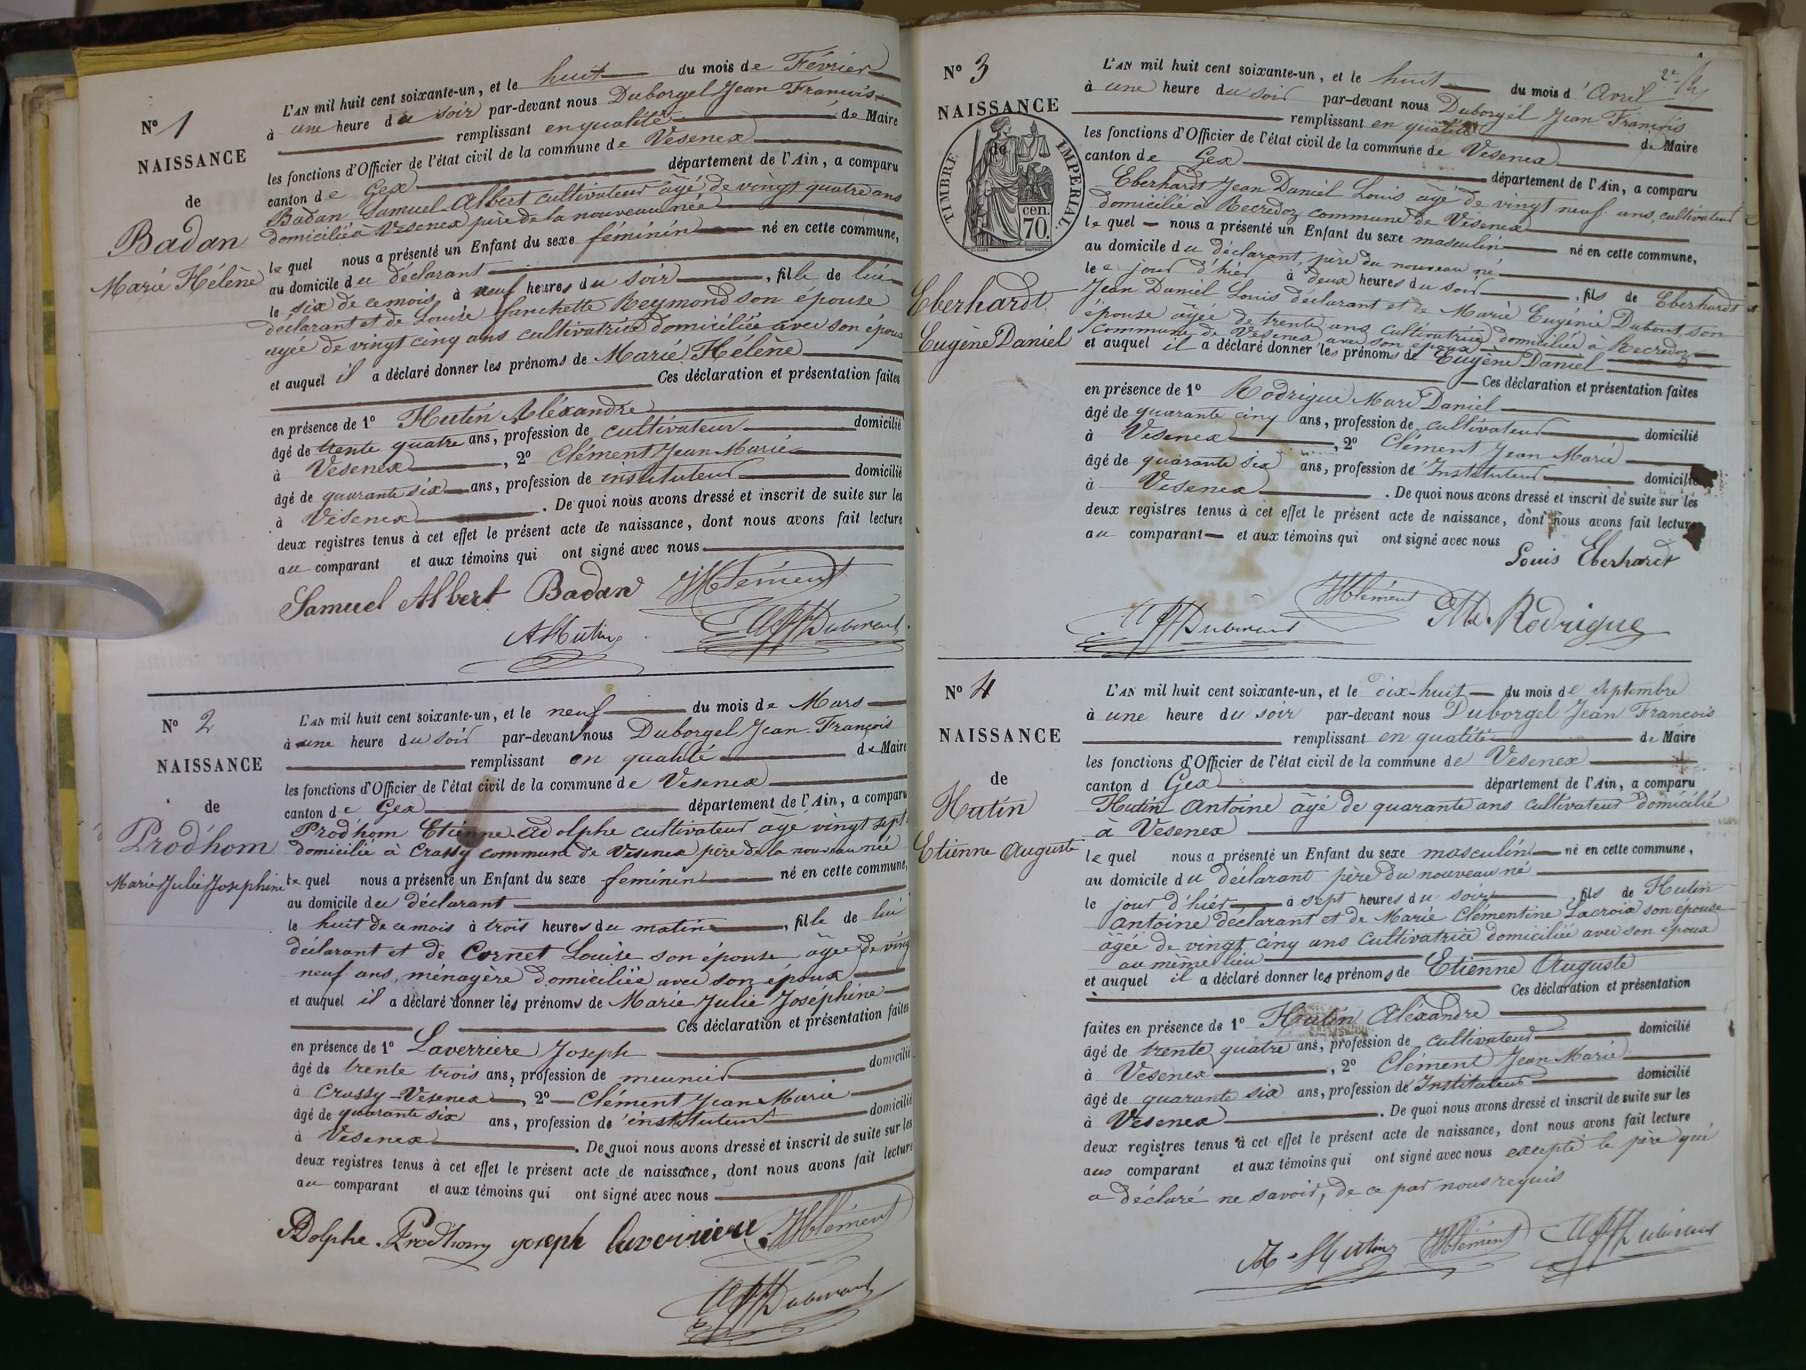 N° 1
NAISSANCE
de
Badan
Marie Hélène
L'AN mil huit cent soixante-un, et le huit du mois de Février
à une heure du soir par-devant nous Duborgel Jean Francois
remplissant en qualité de Maire
les fonctions d'Officier de l'état civil de la commune de Vesenex
canton de Gex département de l'Ain, a comparu
Badan Samuel-Albert cultivateur âgé de vingt quatre ans
domicilié à Vesenex père de la nouveau née
le quel nous a présenté un Enfant du sexe féminin né en cette commune,
au domicile du déclarant
le six de ce mois à neuf heures du soir, fille de lui
déclarant et de Louise fanchette Reymond son épouse
agée de vingt cinq ans cultivatrice domiciliée avec son époux
et auquel il a déclaré donner les prénoms de Marie Hélène
Ces déclaration et présentation faites
en présence de 1° Hutin Aléxandre
âgé de trente quatre ans, profession de cultivateur domicilié
à Vesenex, 2° Clément Jean Marie
âgé de quarante six ans, profession de instituteur domicilié
à Vesenex. De quoi nous avons dressé et inscrit de suite sur les
deux registres tenus à cet effet le présent acte de naissance, dont nous avons fait lecture
au comparant et aux témoins qui ont signé avec nous
Samuel Albert Badan JMClément
A Hutin
N° 2
NAISSANCE
de
Prodhom
Marie Julie Josephine
L'AN mil huit cent soixante-un, et le neuf du mois de Mars
à une heure du soir par-devant nous Duborgel Jean-François
remplissant en qualité de Maire
les fonctions d'Officier de l'état civil de la commune de Vesenex
canton de Gex département de l'Ain, a comparu
Prodhom Etienne-Adolphe cultivateur âgé vingt sept
domicilié à Crassy commune de Vesenex père de la nouveau née
le quel nous a présenté un Enfant du sexe feminin né en cette commune,
au domicile du déclarant
le huit de ce mois à trois heures du matin, fille de lui
déclarant et de Cornet Louise son épouse, agée de vingt
neuf ans, ménagère domiciliée avec son époux
et auquel il a déclaré donner les prénoms de Marie Julie Joséphine
Ces déclaration et présentation faites
en présence de 1° Laverriere Joseph
âgé de trente trois ans, profession de meunier domicilié
à Crassy-Vesenex, 2° Clément Jean Marie
âgé de quarante six ans, profession de instituteur domicilié
à Vesenex. De quoi nous avons dressé et inscrit de suite sur les
deux registres tenus à cet effet le présent acte de naissance, dont nous avons fait lecture
au comparant et aux témoins qui ont signé avec nous
Adolphe Prodhom joseph laverriere JMClément
N° 3
NAISSANCE
de
TIMBRE IMPERIAL.
70 cen.
Eberhardt
Eugène Daniel
L'AN mil huit cent soixante-un, et le huit du mois d'Avril
à une heure du soir par-devant nous Duborgel Jean François
remplissant en qualité de Maire
les fonctions d'Officier de l'état civil de la commune de Vesenex
canton de Gex département de l'Ain, a comparu
Eberhardt Jean Daniel Louis âgé de vingt neuf ans, cultivateur
domicilié à Recredoz commune de Vesenex
le quel nous a présenté un Enfant du sexe masculin né en cette commune,
au domicile du déclarant, père du nouveau né
le jour d'hier à deux heures du soir, fils de Eberhardt
Jean Daniel Louis déclarant et de Marie Eugénie Dubout son
épouse âgée de trente ans cultivatrice domiciliée à Recredoz
commune de Vesenex avec son époux
et auquel il a déclaré donner les prénoms de Eugène Daniel
Ces déclaration et présentation faites
en présence de 1° Rodrigue Marc Daniel
âgé de quarante cinq ans, profession de cultivateur domicilié
à Vesenex, 2° Clément Jean Marie
âgé de quarante six ans, profession de Instituteur domicilié
à Vesenex. De quoi nous avons dressé et inscrit de suite sur les
deux registres tenus à cet effet le présent acte de naissance, dont nous avons fait lecture
au comparant et aux témoins qui ont signé avec nous
Louis Eberhardt
JMClément Md. Rodrigue
N° 4
NAISSANCE
de
Hutin
Etienne Auguste
L'AN mil huit cent soixante-un, et le dix-huit du mois de septembre
à une heure du soir par-devant nous Duborgel Jean François
remplissant en qualité de Maire
les fonctions d'Officier de l'état civil de la commune de Vesenex
canton d Gex département de l'Ain, a comparu
Hutin Antoine âgé de quarante ans cultivateur domicilié
à Vesenex
le quel nous a présenté un Enfant du sexe masculin né en cette commune,
au domicile du déclarant père du nouveau né
le jour d'hier à sept heures du soir, fils de Hutin
Antoine déclarant et de Marie Clémentine Lacroix son épouse
âgée de vingt cinq ans cultivatrice domiciliée avec son époux
au même lieu
et auquel il a déclaré donner les prénoms de Etienne Auguste
Ces déclaration et présentation
faites en présence de 1° Hutin Aléxandre
âgé de trente quatre ans, profession de cultivateur domicilié
à Vesenex, 2° Clément Jean Marie
âgé de quarante six ans, profession de Instituteur domicilié
à Vesenex. De quoi nous avons dressé et inscrit de suite sur les
deux registres tenus à cet effet le présent acte de naissance, dont nous avons fait lecture
au comparant et aux témoins qui ont signé avec nous excepté le père qui
a déclaré ne savoir, de ce par nous requis
A Hutin JMClément